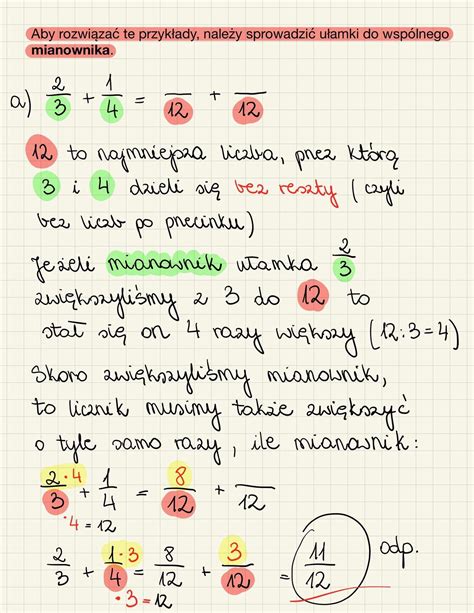 Aby rozwiązać te przykłady, należy sprowadzić ułamki do wspólnego
mianownika.
a) 2/3 + 1/4 = /12 + /12
12 to najmniejsza liczba, przez którą
3 i 4 dzieli się bez reszty (czyli
bez liczb po przecinku)
Jeżeli mianownik ułamka 2/3
zwiększyliśmy z 3 do 12 to
stał się on 4 razy większy (12:3=4)
Skoro zwiększyliśmy mianownik,
to licznik musimy także zwiększyć
o tyle samo razy, ile mianownik:
2·4/3 + 1/4 = 8/12 + /12
·4 = 12
2/3 + 1·3/4 = 8/12 + 3/12 = 11/12 odp.
·3 = 12